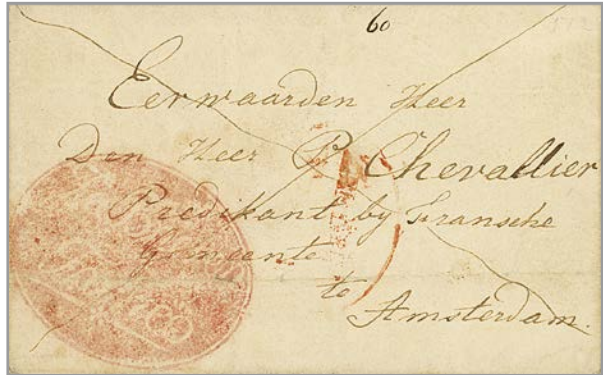 60
Eerwaarden Heer
Den Heer P Chevallier
Predikant by Fransche
Gemeente
te
Amsterdam.